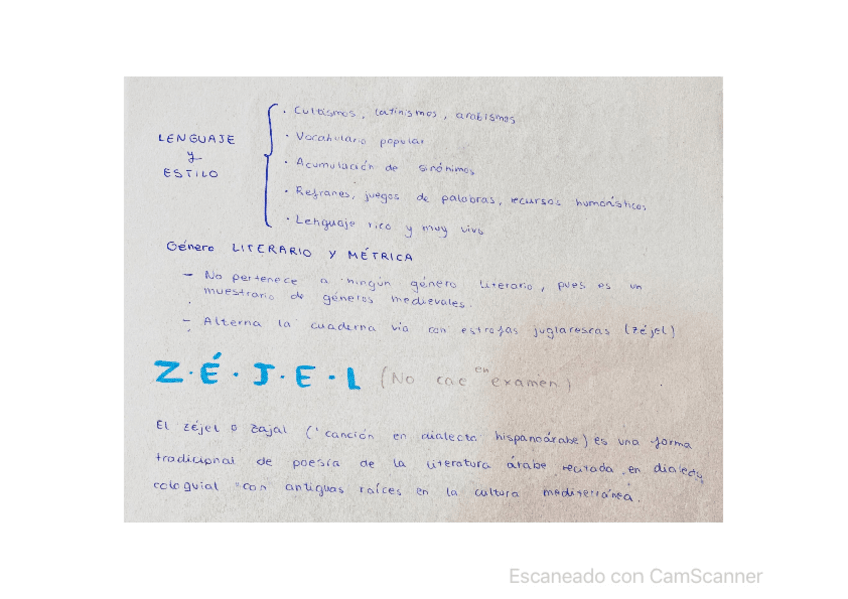 LENGUAJE
y
ESTILO
· Cultismos, latinismos, arabismos
· Vocabulario popular
· Acumulación de sinónimos
· Refranes, juegos de palabras, recursos humorísticos
· Lenguaje rico y muy vivo
Género LITERARIO Y MÉTRICA
- No pertenece a ningún género literario, pues es un
muestrario de géneros medievales.
- Alterna la cuaderna vía con estrofas juglarescas (zéjel)
Z·É·J·E·L (No cae en examen)
El zéjel o zajal ('canción en dialecto hispanoárabe) es una forma
tradicional de poesía de la literatura árabe recitada en dialecto
coloquial con antiguas raíces en la cultura mediterránea.
Escaneado con CamScanner